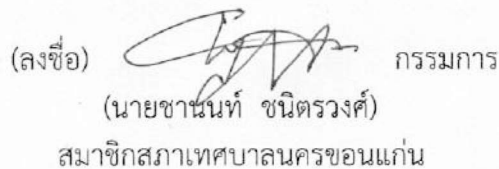 (ลงชื่อ) กรรมการ
(นายชานนท์ ชนิตรวงศ์)
สมาชิกสภาเทศบาลนครขอนแก่น